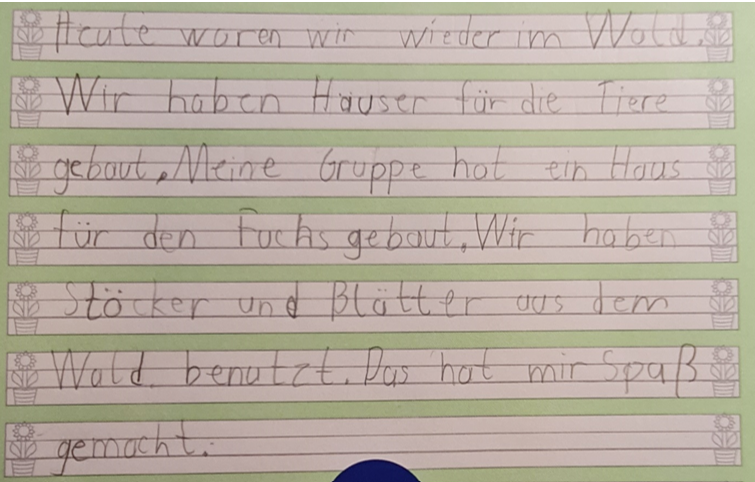 Heute waren wir wieder im Wald.
Wir haben Häuser für die Tiere
gebaut. Meine Gruppe hat ein Haus
für den Fuchs gebaut. Wir haben
Stöcker und Blätter aus dem
Wald benutzt. Das hat mir Spaß
gemacht.